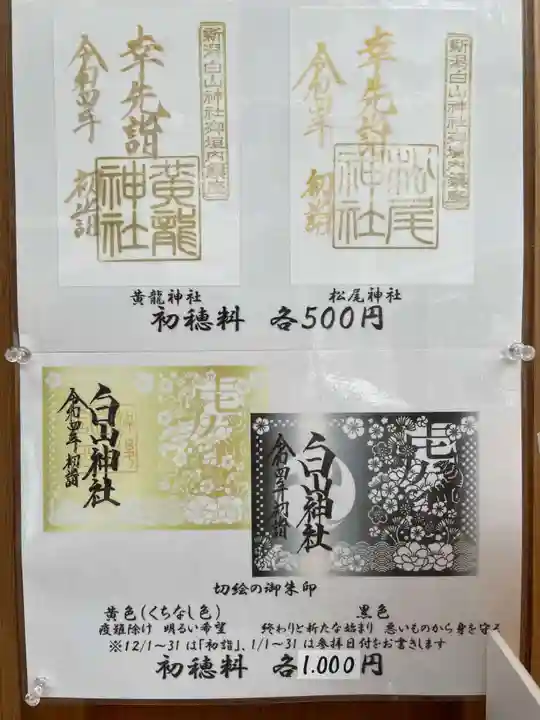 新潟白山神社御垣内鎮座
幸先詣
令和四年 初詣
黄龍神社
新潟白山神社御垣内鎮座
幸先詣
令和四年 初詣
松尾神社
黄龍神社
松尾神社
初穂料 各500円
白山神社
令和四年 初詣
白山神社
令和四年 初詣
切絵の御朱印
黄色(くちなし色)
黒色
疫難除け 明るい希望
終わりと新たな始まり 悪いものから身を守る
※12/1~31は「初詣」、1/1~31は参拝日付をお書きします
初穂料 各1.000円